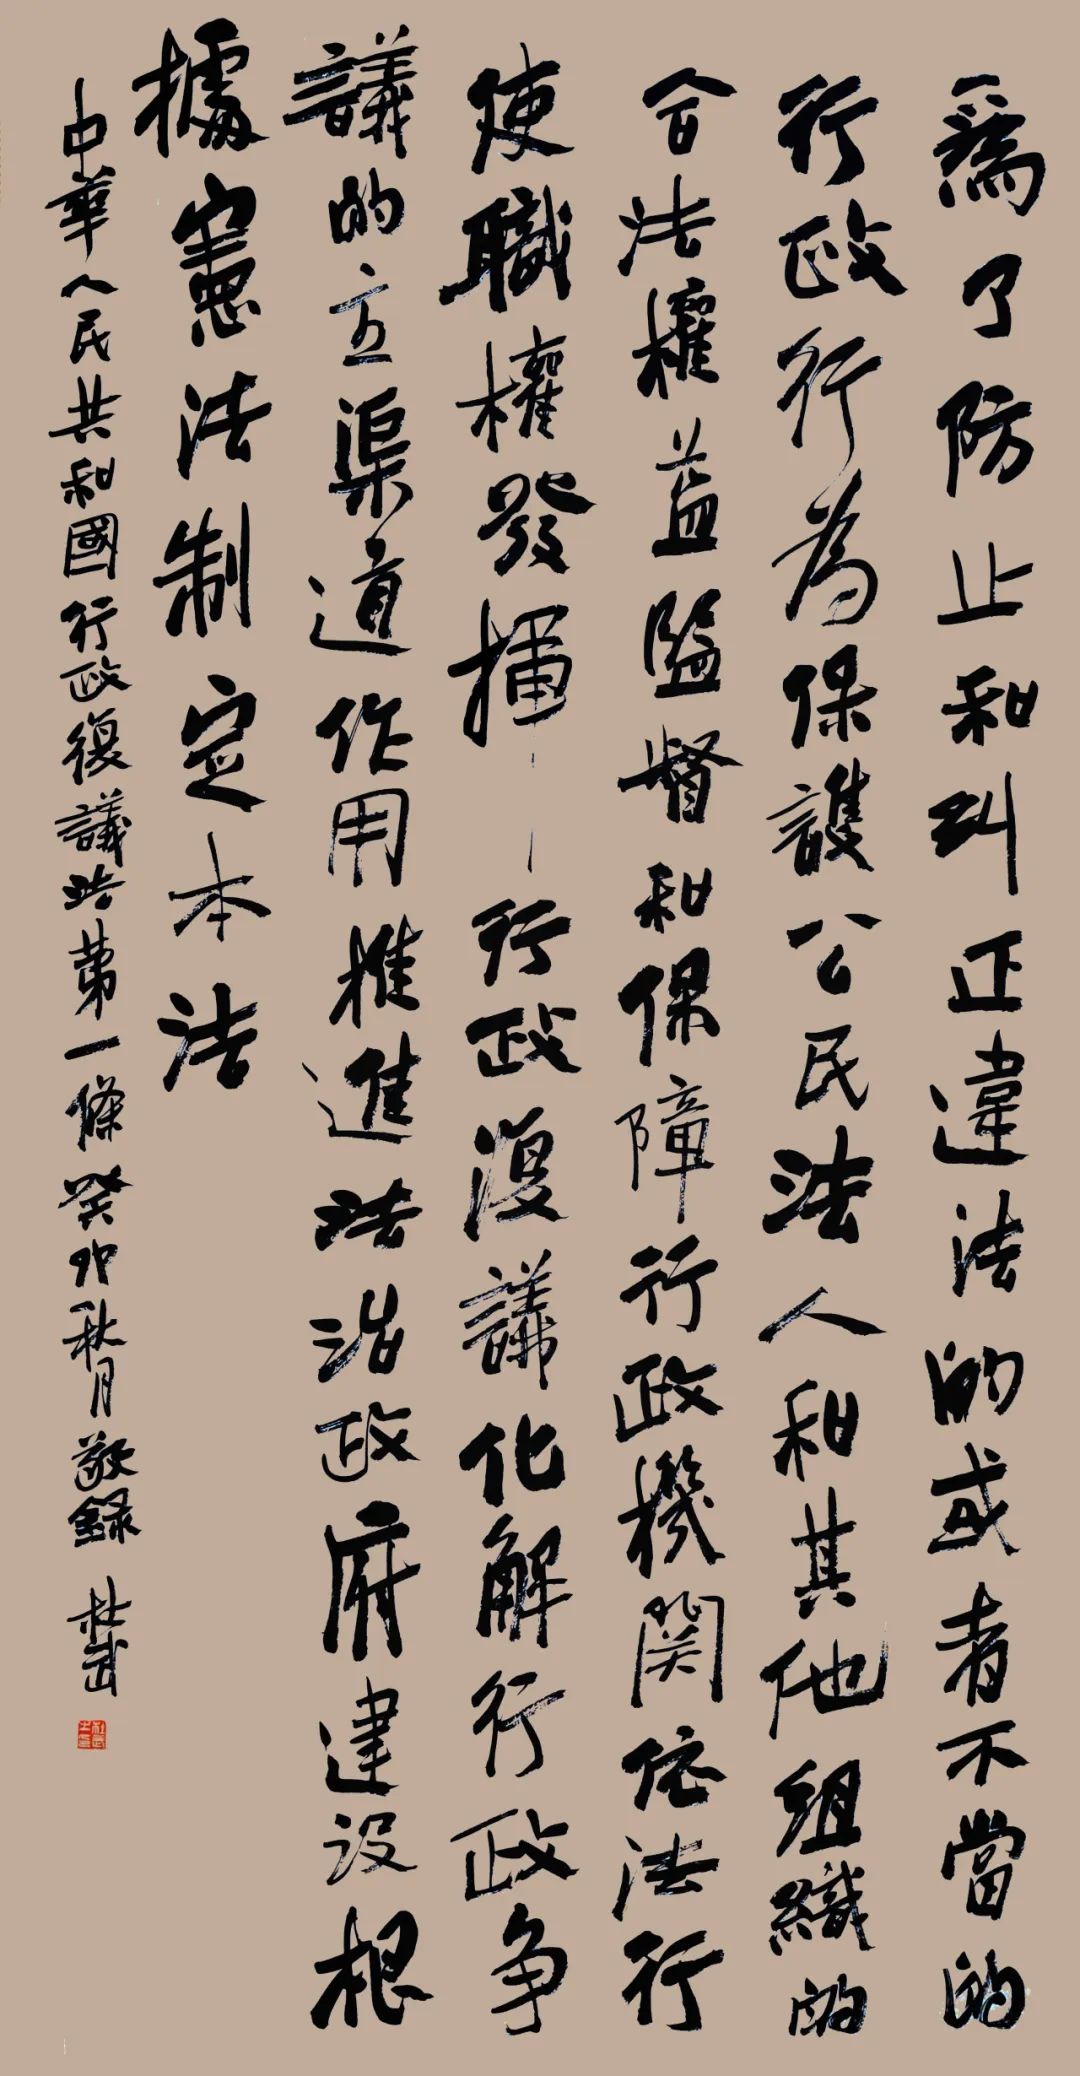 爲了防止和糾正違法的或者不當的
行政行為保護公民法人和其他組織的
合法權益監督和保障行政機関依法行
使職權發揮行政復議化解行政争
議的主渠道作用推進法治政府建设根
據憲法制定本法
中華人民共和國行政復議法第一條癸卯秋月敬錄 杜武